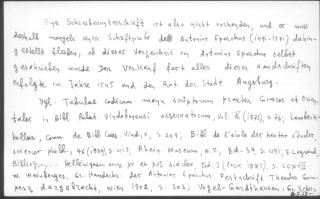 Eine Schreiberunterschrift ist also nicht vorhanden, und es muss
deshalb mangels einer Schriftprobe des Antonios Eparchos (1491-1571) dahin-
gestellt bleiben, ob dieses Verzeichnis von Antonios Eparchos selbst
geschrieben wurde. Der Verkauf fast aller dieser Handschriften
erfolgte im Jahre 1545 an den Rat der Stadt Augsburg.
Vgl. Tabulae codicum manu scriptorum praeter Graecos et Orien-
tales in Bibl. Palat. Vindobonensi asservatorum, S. 76; Lambecii-
Kollar, Comm. de Bibl. Caes. Vind., Bibl. de l'école des hautes études
Rheim. Museum, N.F., Bd. E. Legrand,
Bibliogr. Helléniques aux XV et XVI siècles, Bd. I (Paris 1885), S.
W. Weinberger, Gr. Handschr. des Antonios Eparchos, Festschrift Theodor Gom-
perz dargebracht, Wien 1902, S. 303; Vogel-Gardthausen, Gr. Schr.,